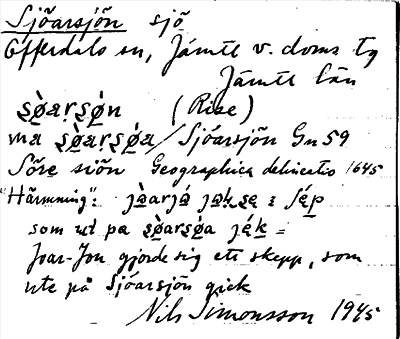 Sjöarsjön sjö
Offerdals sn, Jämtl v. doms tg
Jämtl län
sø̀arsø̀n (Rise)
ma sø̀arsø̀a / Sjöarsjön Gn 59
Söre siön Geographica delineatio 1645
"Härmning": jàarjà
som ut pa sø̀arsø̀a jék =
Joar-Jon gjorde sig ett skepp, som
ute på Sjöarsjön gick
Nils Simonsson 1945